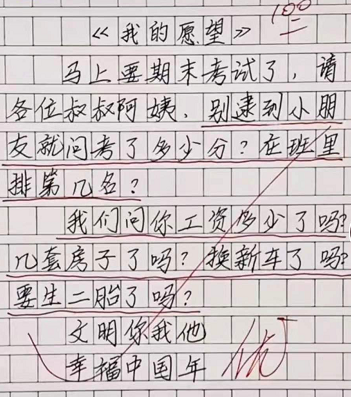 100
《我的愿望》
马上要期末考试了，请
各位叔叔阿姨，别逮到小朋
友就问考了多少分？在班里
排第几名？
我们问你工资多少了吗？
几套房子了吗？换新车了吗？
要生二胎了吗？
文明你我他
幸福中国年
优